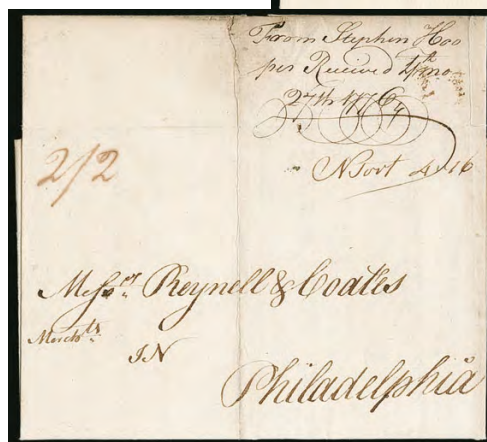 From Stephen Hoo
per Received 4th mo
27th 1776
N Port 4 16
2/2
Messrs Reynell & Coates
Merchts
IN
Philadelphia